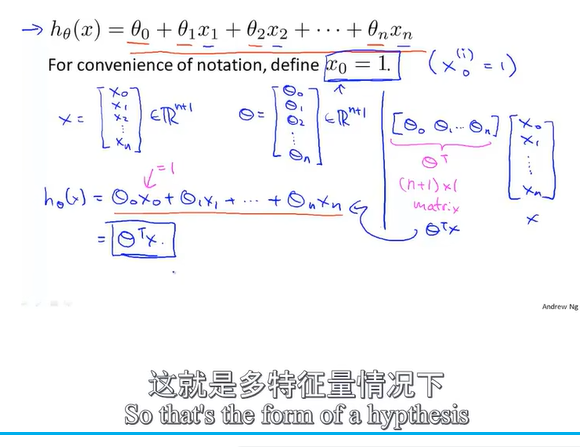 → hθ(x) = θ₀ + θ₁x₁ + θ₂x₂ + ⋯ + θₙxₙ
For convenience of notation, define x₀ = 1. (x₀⁽ⁱ⁾ = 1)
x = [x₀ x₁ x₂ ⋮ xₙ] ∈ ℝⁿ⁺¹ θ = [θ₀ θ₁ θ₂ ⋮ θₙ] ∈ ℝⁿ⁺¹
[θ₀ θ₁ ⋯ θₙ] [x₀ x₁ ⋮ xₙ]
θᵀ
(n+1) × 1
matrix
x
θᵀx
= 1
hθ(x) = θ₀x₀ + θ₁x₁ + ⋯ + θₙxₙ
= θᵀx.
Andrew Ng
这就是多特征量情况下
So that's the form of a hypthesis